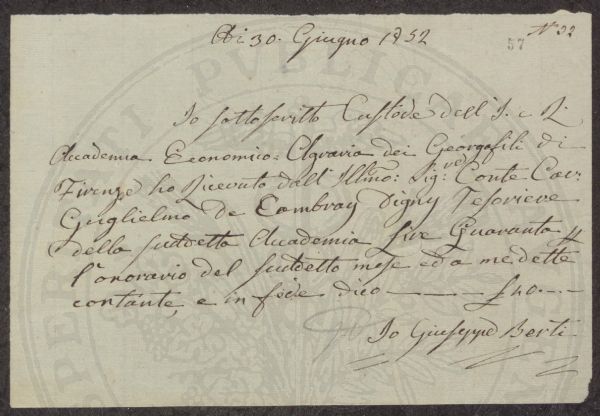 Adi 30. Giugno 1852
57
N° 32
Io sottoscritto Custode dell' I. e R.
Accademia Economico-Agraria dei Georgofili di
Firenze ho Ricevuto dall' Illmo: Sigre: Conte Cav:
Guglielmo de Cambray Digny Tesoriere
della suddetta Accademia Lire Quaranta
l'onorario del suddetto mese ed a me dette
contante, e in fede dico — £ 40.—
Io Giuseppe Berti